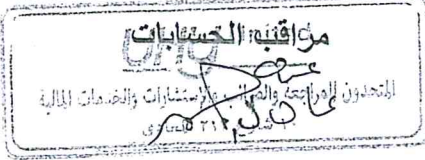 مراقب الحسابات
UHY
المتحدون للمراجعة والضرائب والإستشارات والخدمات المالية
٢١٢٥ المعادى